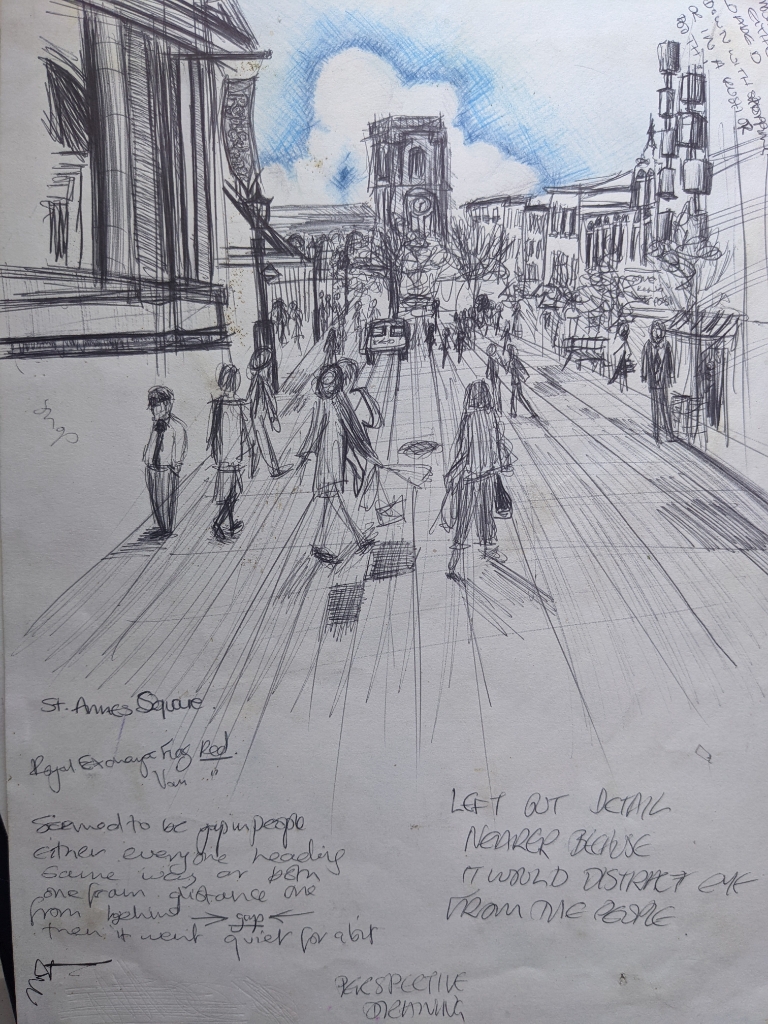 EITHER
LOADED
DOWN WITH SHOPPING
OR IN A RUSH OR
BOTH
ROYAL
St. Annes Square.
Royal Exchange Flag Red.
Van "
Seemed to be gap in people
either everyone heading
same way or both
one from distance one
from behind → gap ←
then it went quiet for a bit
LEFT OUT DETAIL
NEARER BECAUSE
IT WOULD DISTRACT EYE
FROM THE PEOPLE
PERSPECTIVE
DRAWING